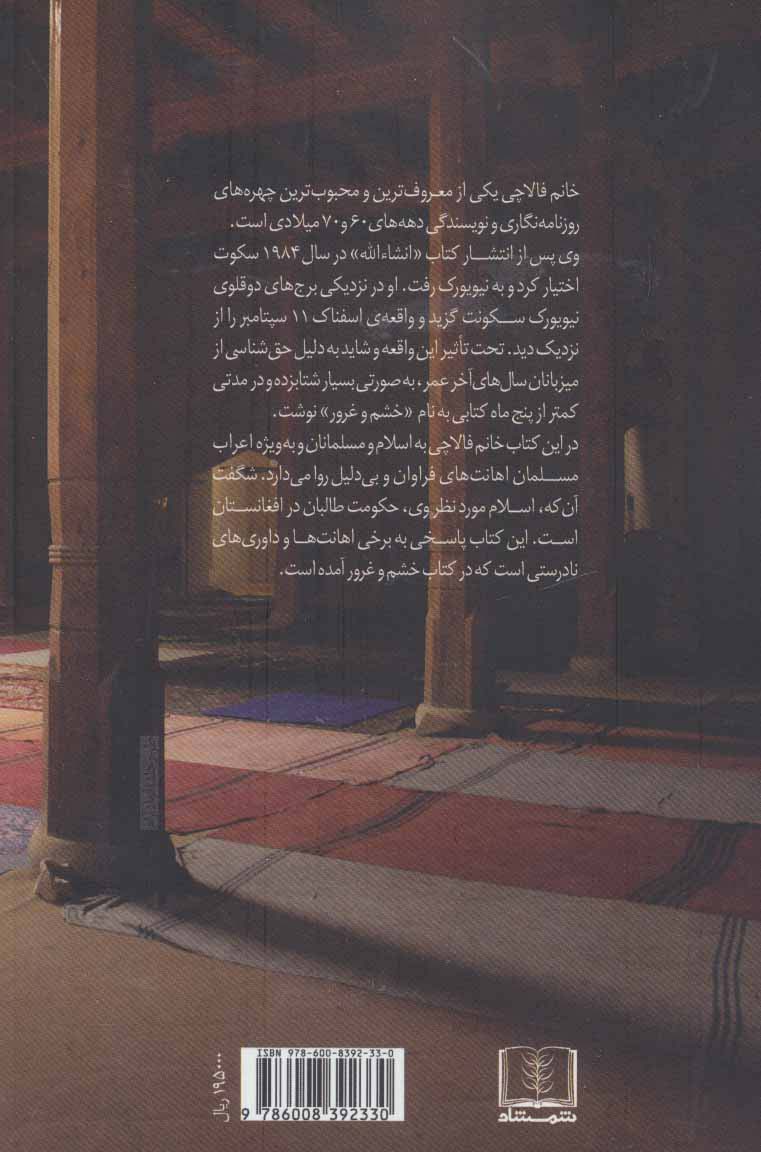 خانم فالاچی یکی از معروف‌ترین و محبوب‌ترین چهره‌های
روزنامه‌نگاری و نویسندگی دهه‌های ۶۰ و ۷۰ میلادی است.
وی پس از انتشار کتاب «انشاءالله» در سال ۱۹۸۴ سکوت
اختیار کرد و به نیویورک رفت. او در نزدیکی برج‌های دوقلوی
نیویورک سکونت گزید و واقعه‌ی اسفناک ۱۱ سپتامبر را از
نزدیک دید. تحت تأثیر این واقعه و شاید به دلیل حق‌شناسی از
میزبانان سال‌های آخر عمر، به‌صورتی بسیار شتابزده و در مدتی
کمتر از پنج ماه کتابی به نام «خشم و غرور» نوشت.
در این کتاب خانم فالاچی به اسلام و مسلمانان و به‌ویژه اعراب
مسلمان اهانت‌های فراوان و بی‌دلیل روا می‌دارد. شگفت
آن‌که، اسلام مورد نظر وی، حکومت طالبان در افغانستان
است. این کتاب پاسخی به برخی اهانت‌ها و داوری‌های
نادرستی است که در کتاب خشم و غرور آمده است.
۱۹۵۰۰۰ ریال
ISBN 978-600-8392-33-0
9 786008 392330
شمشاد